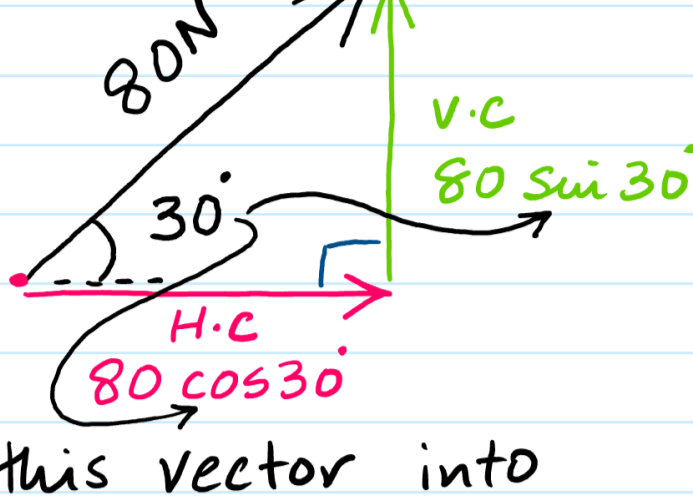 80N
V.C
80 sin 30°
30°
H.C
80 cos30°
this vector into